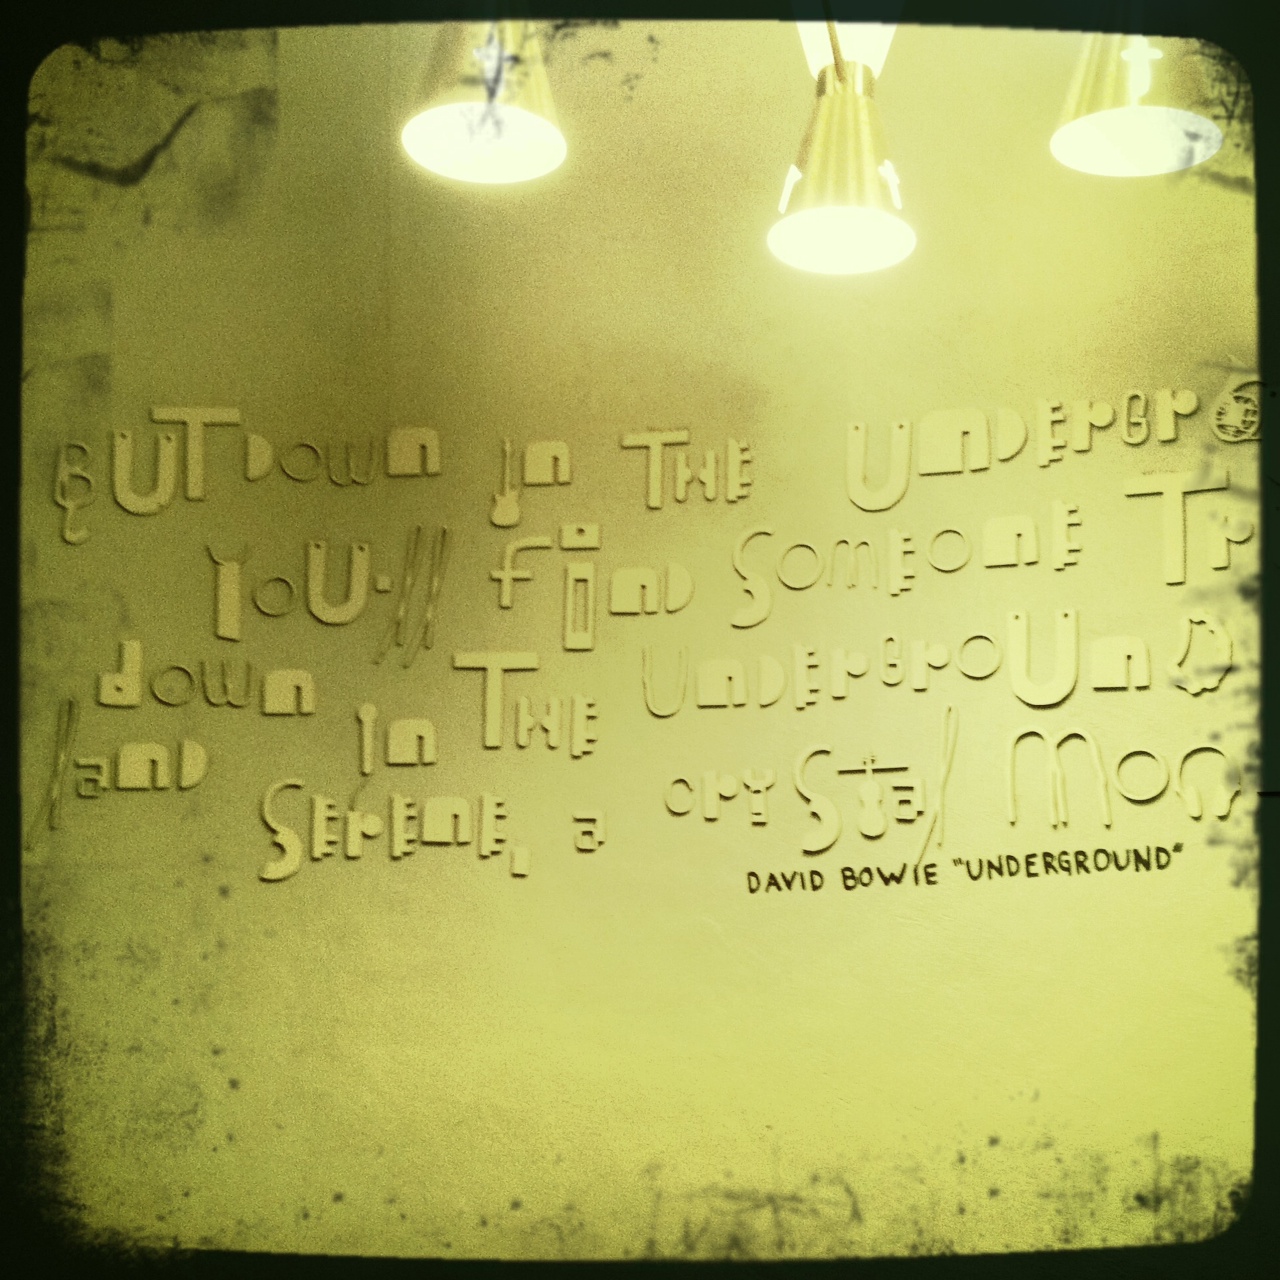 BUT down in THE UnDErGrO
YoU'll find SomEonE Tr
down in THE UnDErGroUnD
land SErEnE, a crystal moon
DAVID BOWIE "UNDERGROUND"